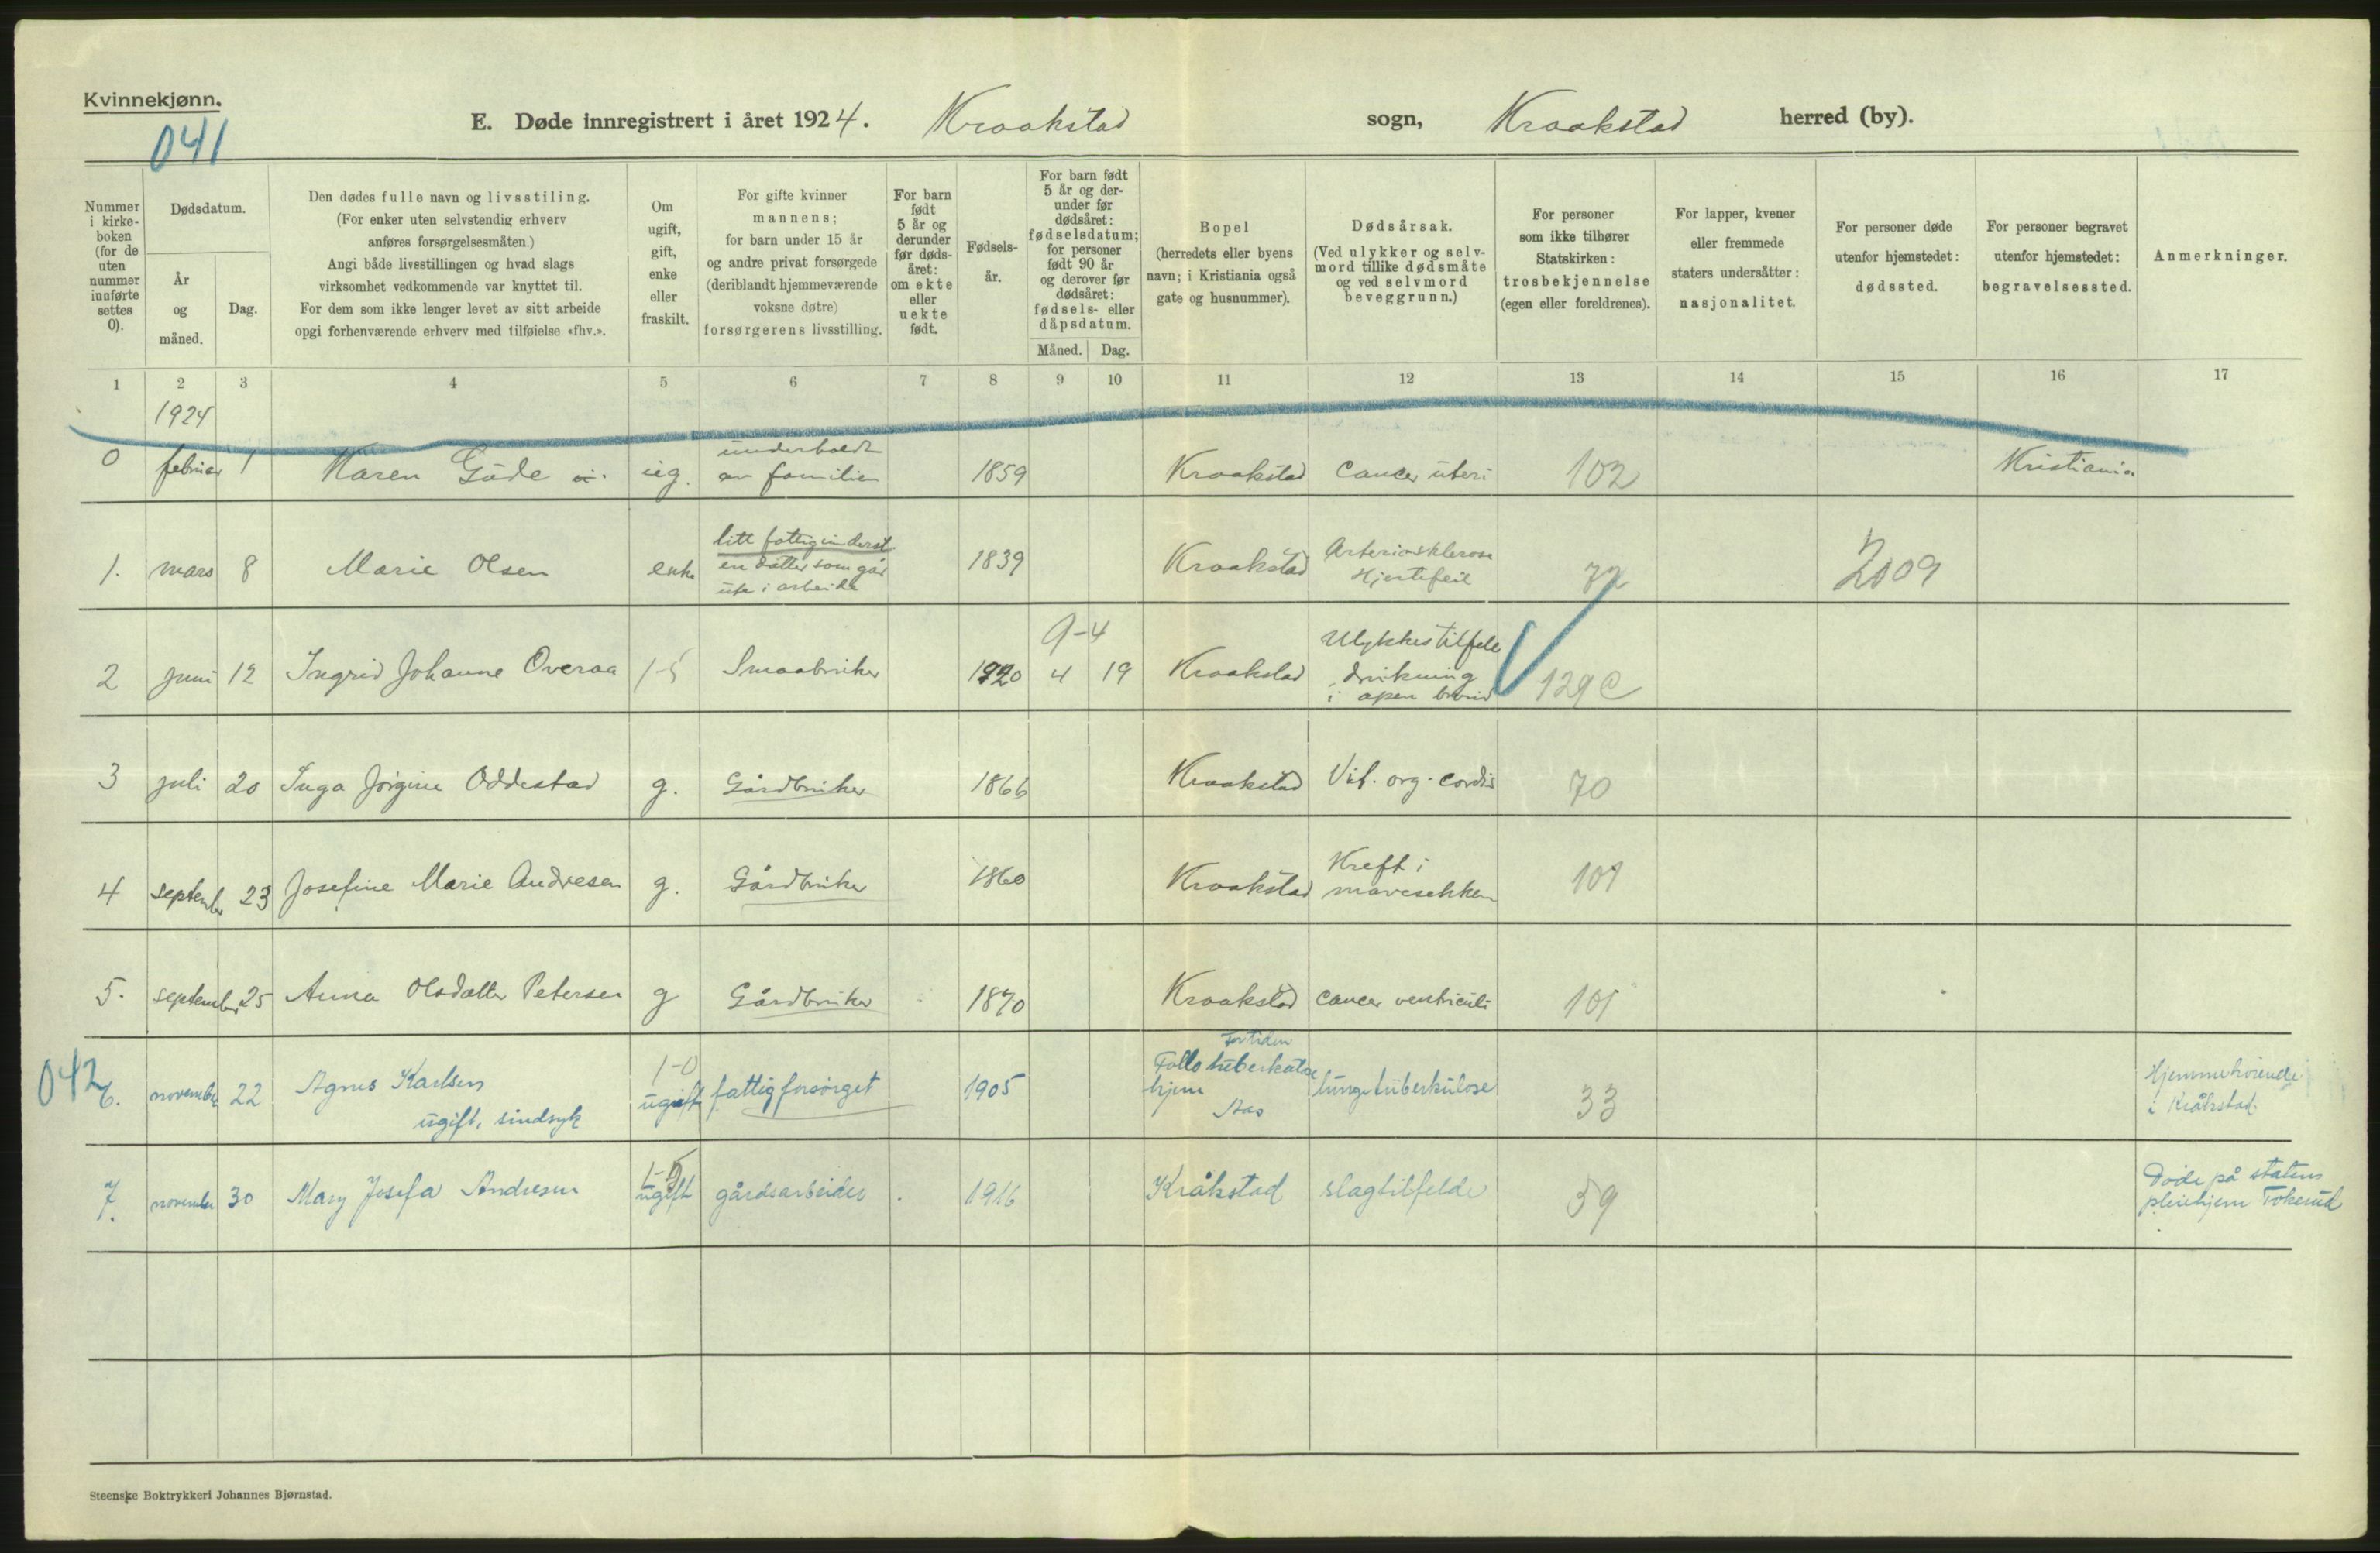 Kvinnekjønn.
041
E. Døde innregistrert i året 1924. Kraakstad sogn, Kraakstad herred (by).
Nummer i kirke-boken (for de uten nummer innførte settes 0).
Dødsdatum.
År og måned.
Dag.
Den dødes fulle navn og livsstiling.
(For enker uten selvstendig erhverv
anføres forsørgelsesmåten.)
Angi både livsstillingen og hvad slags
virksomhet vedkommende var knyttet til.
For dem som ikke lenger levet av sitt arbeide
opgi forhenværende erhverv med tilføielse «fhv.».
Om ugift, gift, enke eller fraskilt.
For gifte kvinner
mannens;
for barn under 15 år
og andre privat forsørgede
(deriblandt hjemmeværende
voksne døtre)
forsørgerens livsstilling.
For barn født 5 år og derunder før døds-året: om ekte eller uekte født.
Fødsels-år.
For barn født 5 år og der-under før dødsåret: fødselsdatum; for personer født 90 år og derover før dødsåret: fødsels- eller dåpsdatum.
Måned. Dag.
Bopel
(herredets eller byens
navn; i Kristiania også
gate og husnummer).
Dødsårsak.
(Ved ulykker og selv-
mord tillike dødsmåte
og ved selvmord
beveggrunn.)
For personer
som ikke tilhører
Statskirken:
trosbekjennelse
(egen eller foreldrenes).
For lapper, kvener
eller fremmede
staters undersåtter:
nasjonalitet.
For personer døde
utenfor hjemstedet:
dødssted.
For personer begravet
utenfor hjemstedet:
begravelsessted.
Anmerkninger.
1 2 3 4 5 6 7 8 9 10 11 12 13 14 15 16 17
1924
0 februar 1 Karen Gude ug. underholdt av familien 1859 Kraakstad Cancer uteri 102 Kristiania
1. mars 8 Marie Olsen enke litt fattigunderst. en datter som går ute i arbeide 1839 Kraakstad Arteriosklerose Hjertefeil 72 2009
9-4
2 juni 12 Ingrid Johanne Overaa 1-5 Smaabruker 1920 4 19 Kraakstad Ulykkestilfele drukning i åpen brønd 129 C
3 juli 20 Inga Jørgine Oddestad g. Gårdbruker 1866 Kraakstad Vit. org. cordis 70
4 september 23 Josefine Marie Andresen g. Gårdbruker 1860 Kraakstad Kreft i mavesekken 101
5. september 25 Anna Olsdatter Petersen g Gårdbruker 1870 Kraakstad Cancer ventriculi 101
042 6. november 22 Agnes Karlsen ugift, sindsyk 1-0 ugift fattigforsørget 1905 For tiden Follo tuberkulosehjem Aas lungetuberkulose 33 Hjemmehørende i Kråkstad.
7. november 30 Mary Josefa Andresen 1-5 ugift gårdsarbeider 1916 Kråkstad slagtilfelde 59 Døde på statens pleiehjem Tokerud
Steenske Boktrykkeri Johannes Bjørnstad.